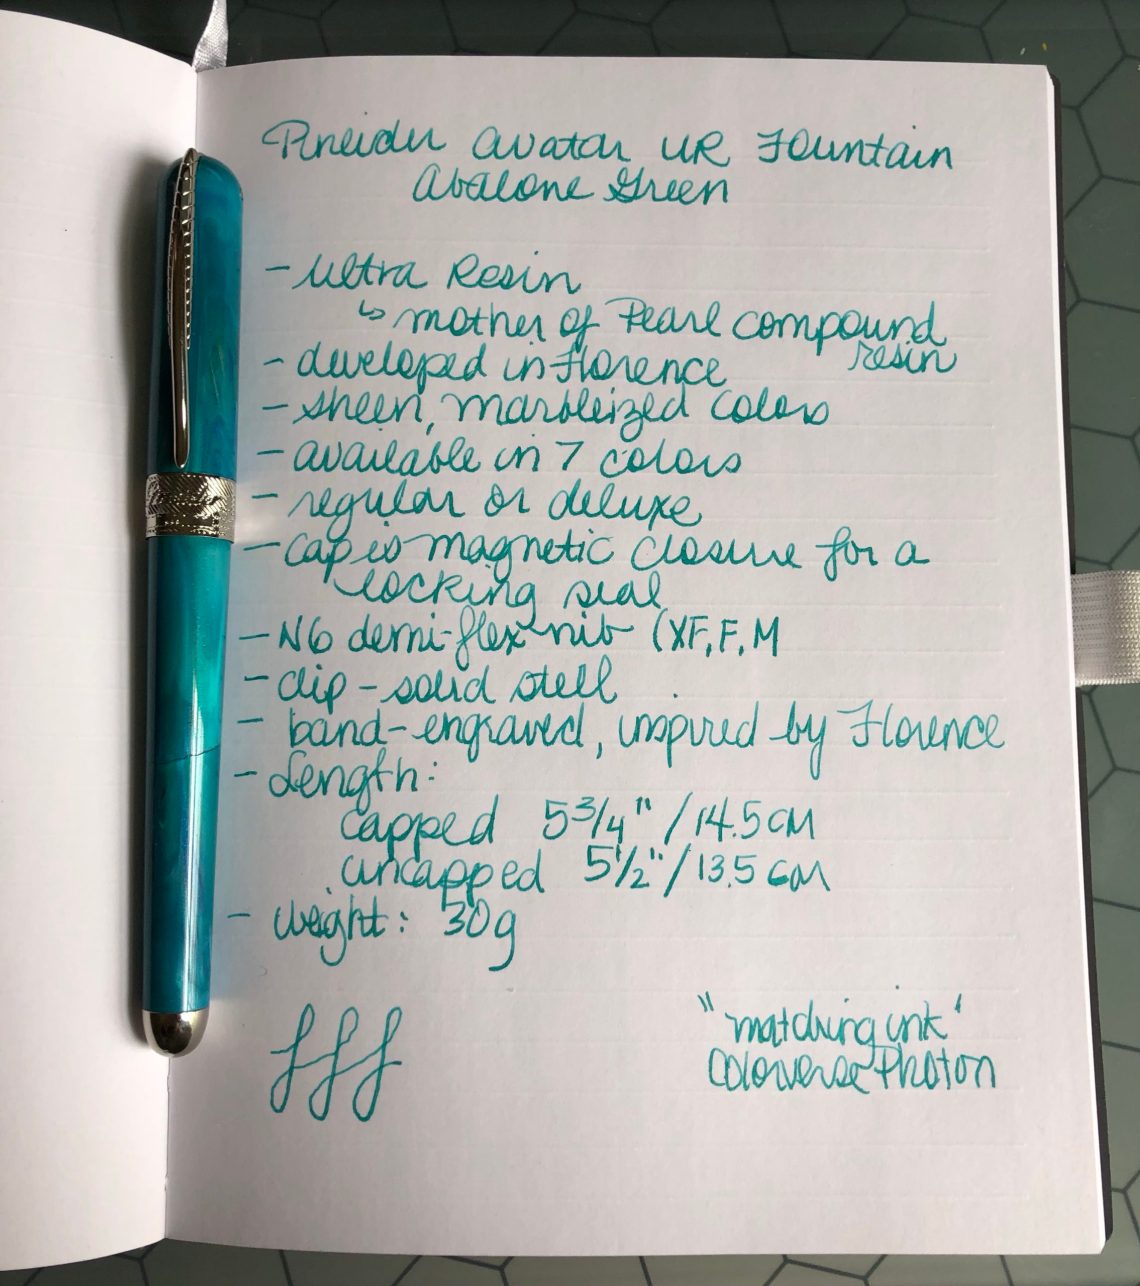 Pineider Avatar UR Fountain
Abalone Green
- Ultra Resin
↳ mother of Pearl compound
resin
- developed in Florence
- sheen, marbleized colors
- available in 7 colors
- regular or deluxe
- cap is magnetic closure for a
locking seal
- N6 demi-flex nib (XF, F, M
- clip - solid stell
- band - engraved, inspired by Florence
- Length:
capped 5 3/4" / 14.5 cm
uncapped 5 1/2" / 13.5 cm
- weight: 30g
fff
"matching ink"
Colorverse Photon